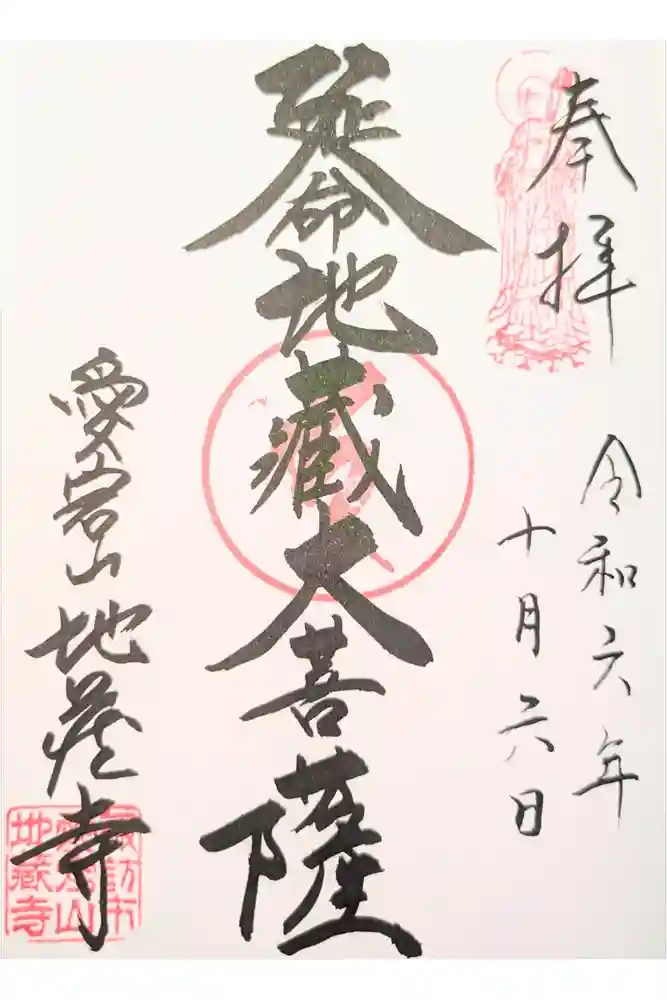 奉拝
令和六年
十月六日
延命地蔵大菩薩
愛宕山地蔵寺
諏訪市
愛宕山
地蔵寺